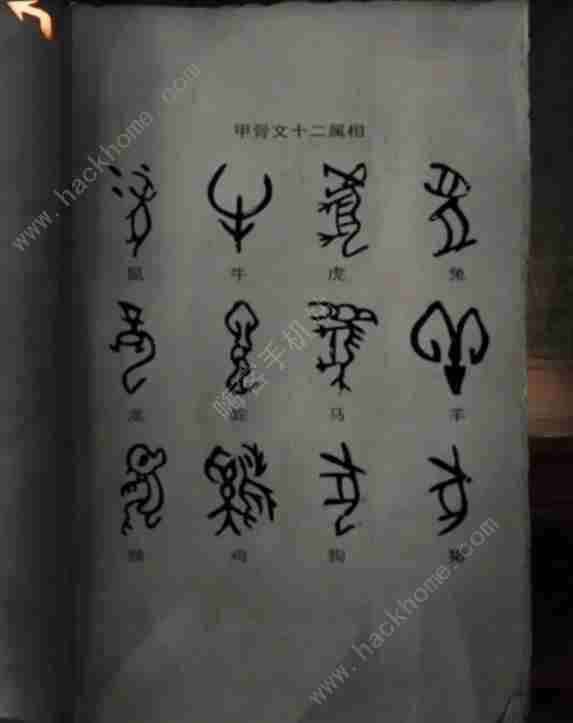 www.hackhome.com
甲骨文十二属相
鼠 牛 虎 兔
龙 蛇 马 羊
嗨客手机
猴 鸡 狗 猪
www.hackhome.com